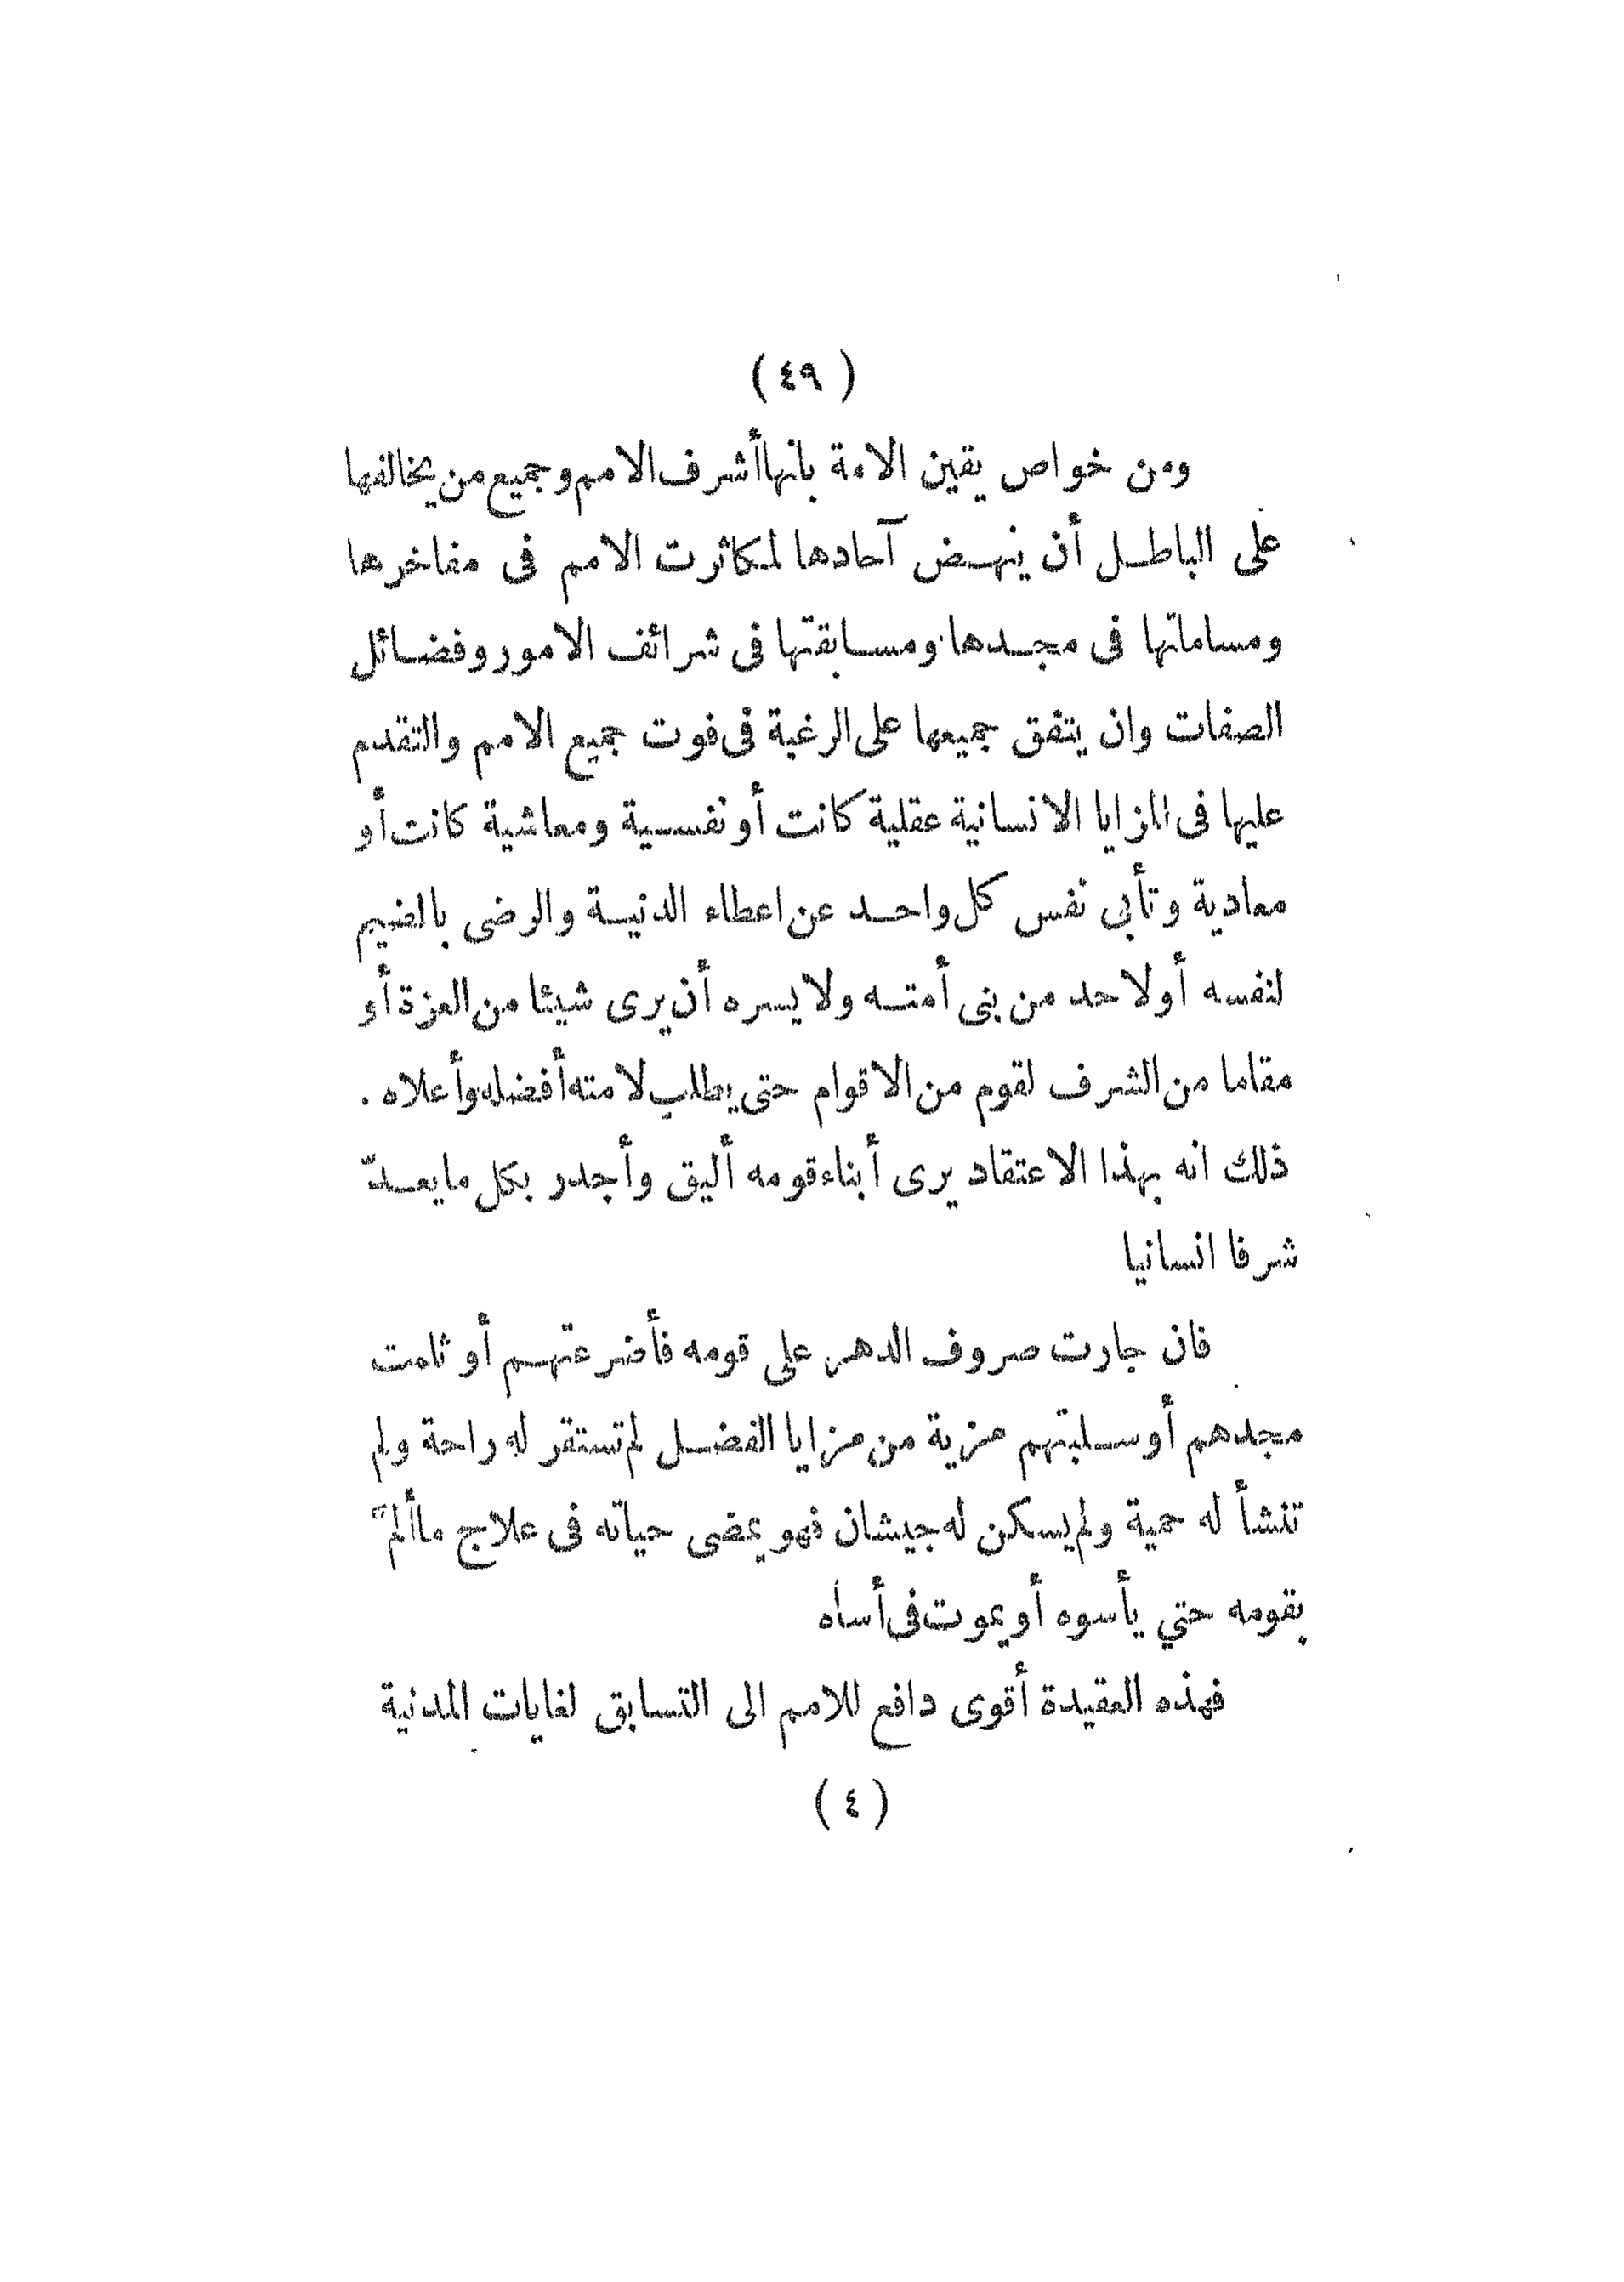 ( ٤٩ )
ومن خواص يقين الامة بانها أشرف الامم وجميع من يخالفها
على الباطل أن ينهض آحادها لمكاثرت الامم فى مفاخرها
ومساماتها فى مجدها ومسابقتها فى شرائف الامور وفضائل
الصفات وان يتفق جميعها على الرغبة فى فوت جميع الامم والتقدم
عليها فى المزايا الانسانية عقلية كانت أو نفسية ومعاشية كانت أو
معادية وتأبى نفس كل واحد عن اعطاء الدنية والرضى بالضيم
لنفسه أولاحد من بنى أمته ولا يسره أن يرى شيئا من العزة أو
مقاما من الشرف لقوم من الاقوام حتى يطلب لامته أفضله وأعلاه .
ذلك انه بهذا الاعتقاد يرى أبناء قومه أليق وأجدر بكل ما يعدّ
شرفا انسانيا
فان جارت صروف الدهر على قومه فأضرعتهم أو ثلمت
مجدهم أو سلبتهم مزية من مزايا الفضل لم تستقر له راحة ولم
تنشأ له حمية ولم يسكن له جيشان فهو يمضى حياته فى علاج ما ألمّ
بقومه حتي يأسوه أو يموت فى أساه
فهذه العقيدة أقوى دافع للامم الى التسابق لغايات المدنية
( ٤ )